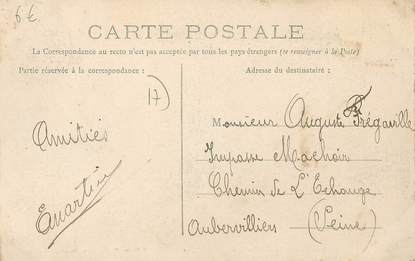 6€
CARTE POSTALE
La Correspondance au recto n'est pas acceptée par tous les pays étrangers (se renseigner à la Poste)
Partie réservée à la correspondance :
Adresse du destinataire :
17)
Amitiés
Monsieur Auguste Trégaville
Impasse Machoir
Chemin de L'Echange
Aubervilliers (Seine)